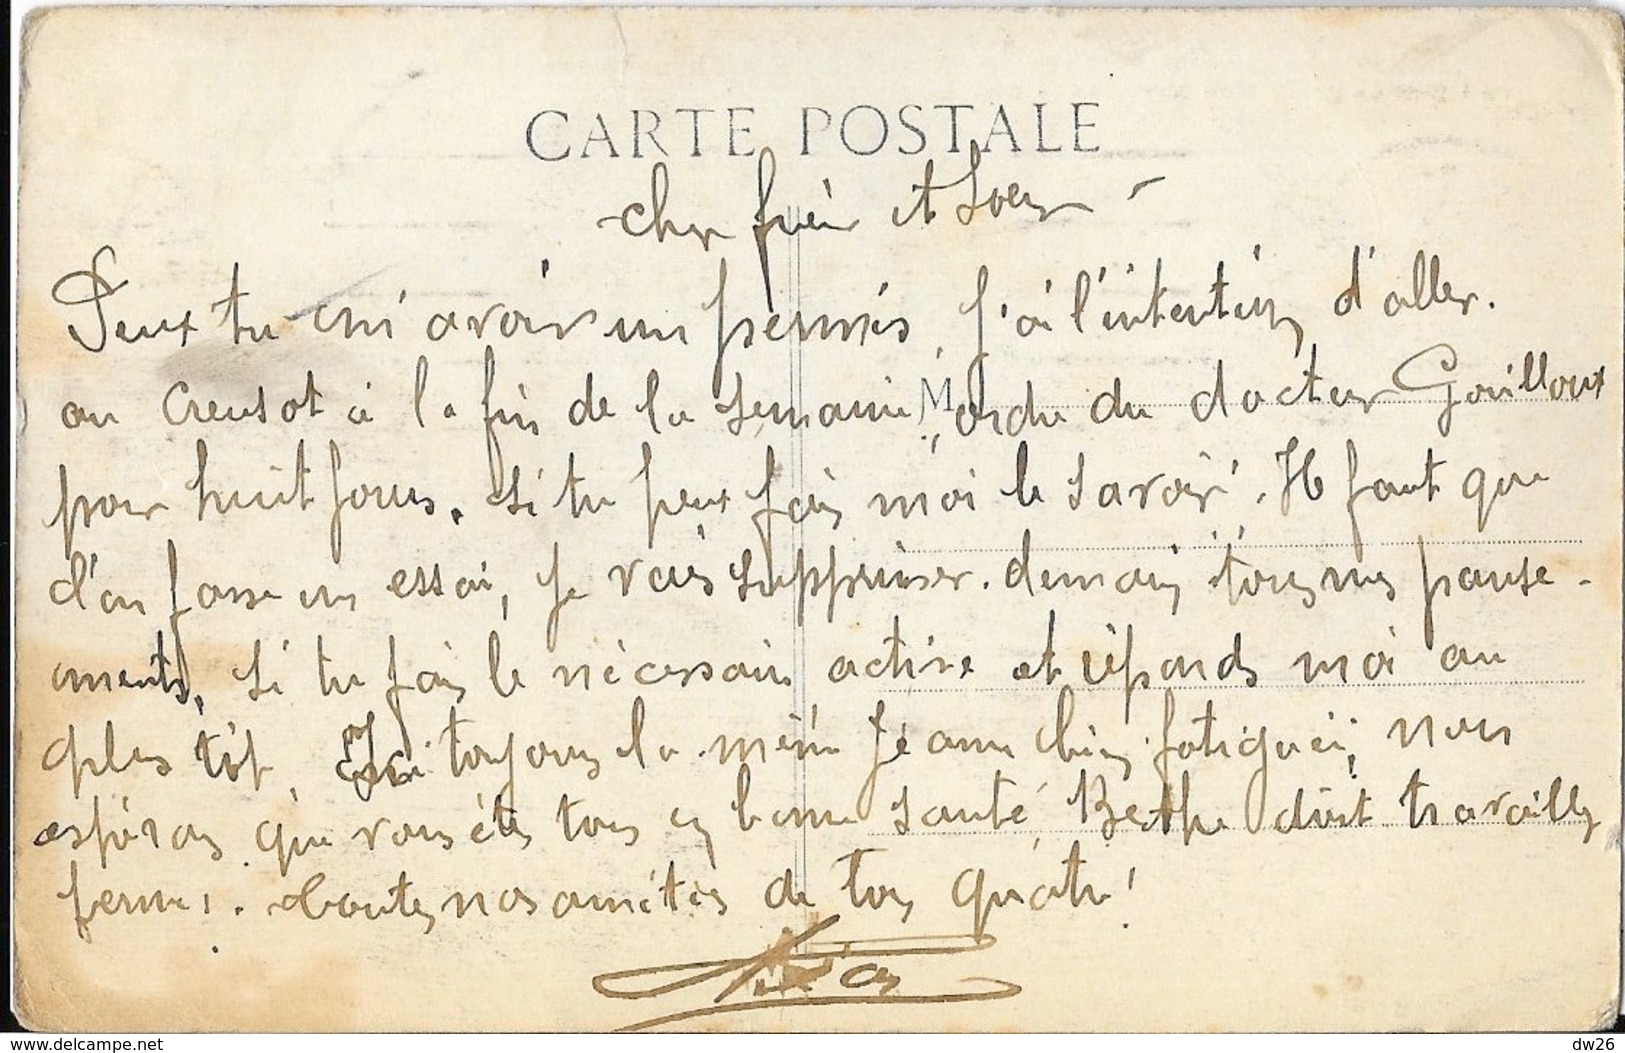 CARTE POSTALE
cher frère et Soeur -
Peux tu m'avoir un permis, j'ai l'intention d'aller.
au Creusot à la fin de la semaine du docteur Gouilloux
pour huit jours. si tu peux fais moi le savoir. Il faut que
l'on fasse un essai, je vais supprimer. demain tous mes panse-
ments, si tu fais le nécessaire active et réponds moi au
plus tôt, Ici toujours la même Jeanne bien fatiguée, nous
espérons que vous êtes tous en bonne santé, Berthe doit travailler
ferme. Toutes nos amitiés de tous quatre!
delcampe.net
dw26